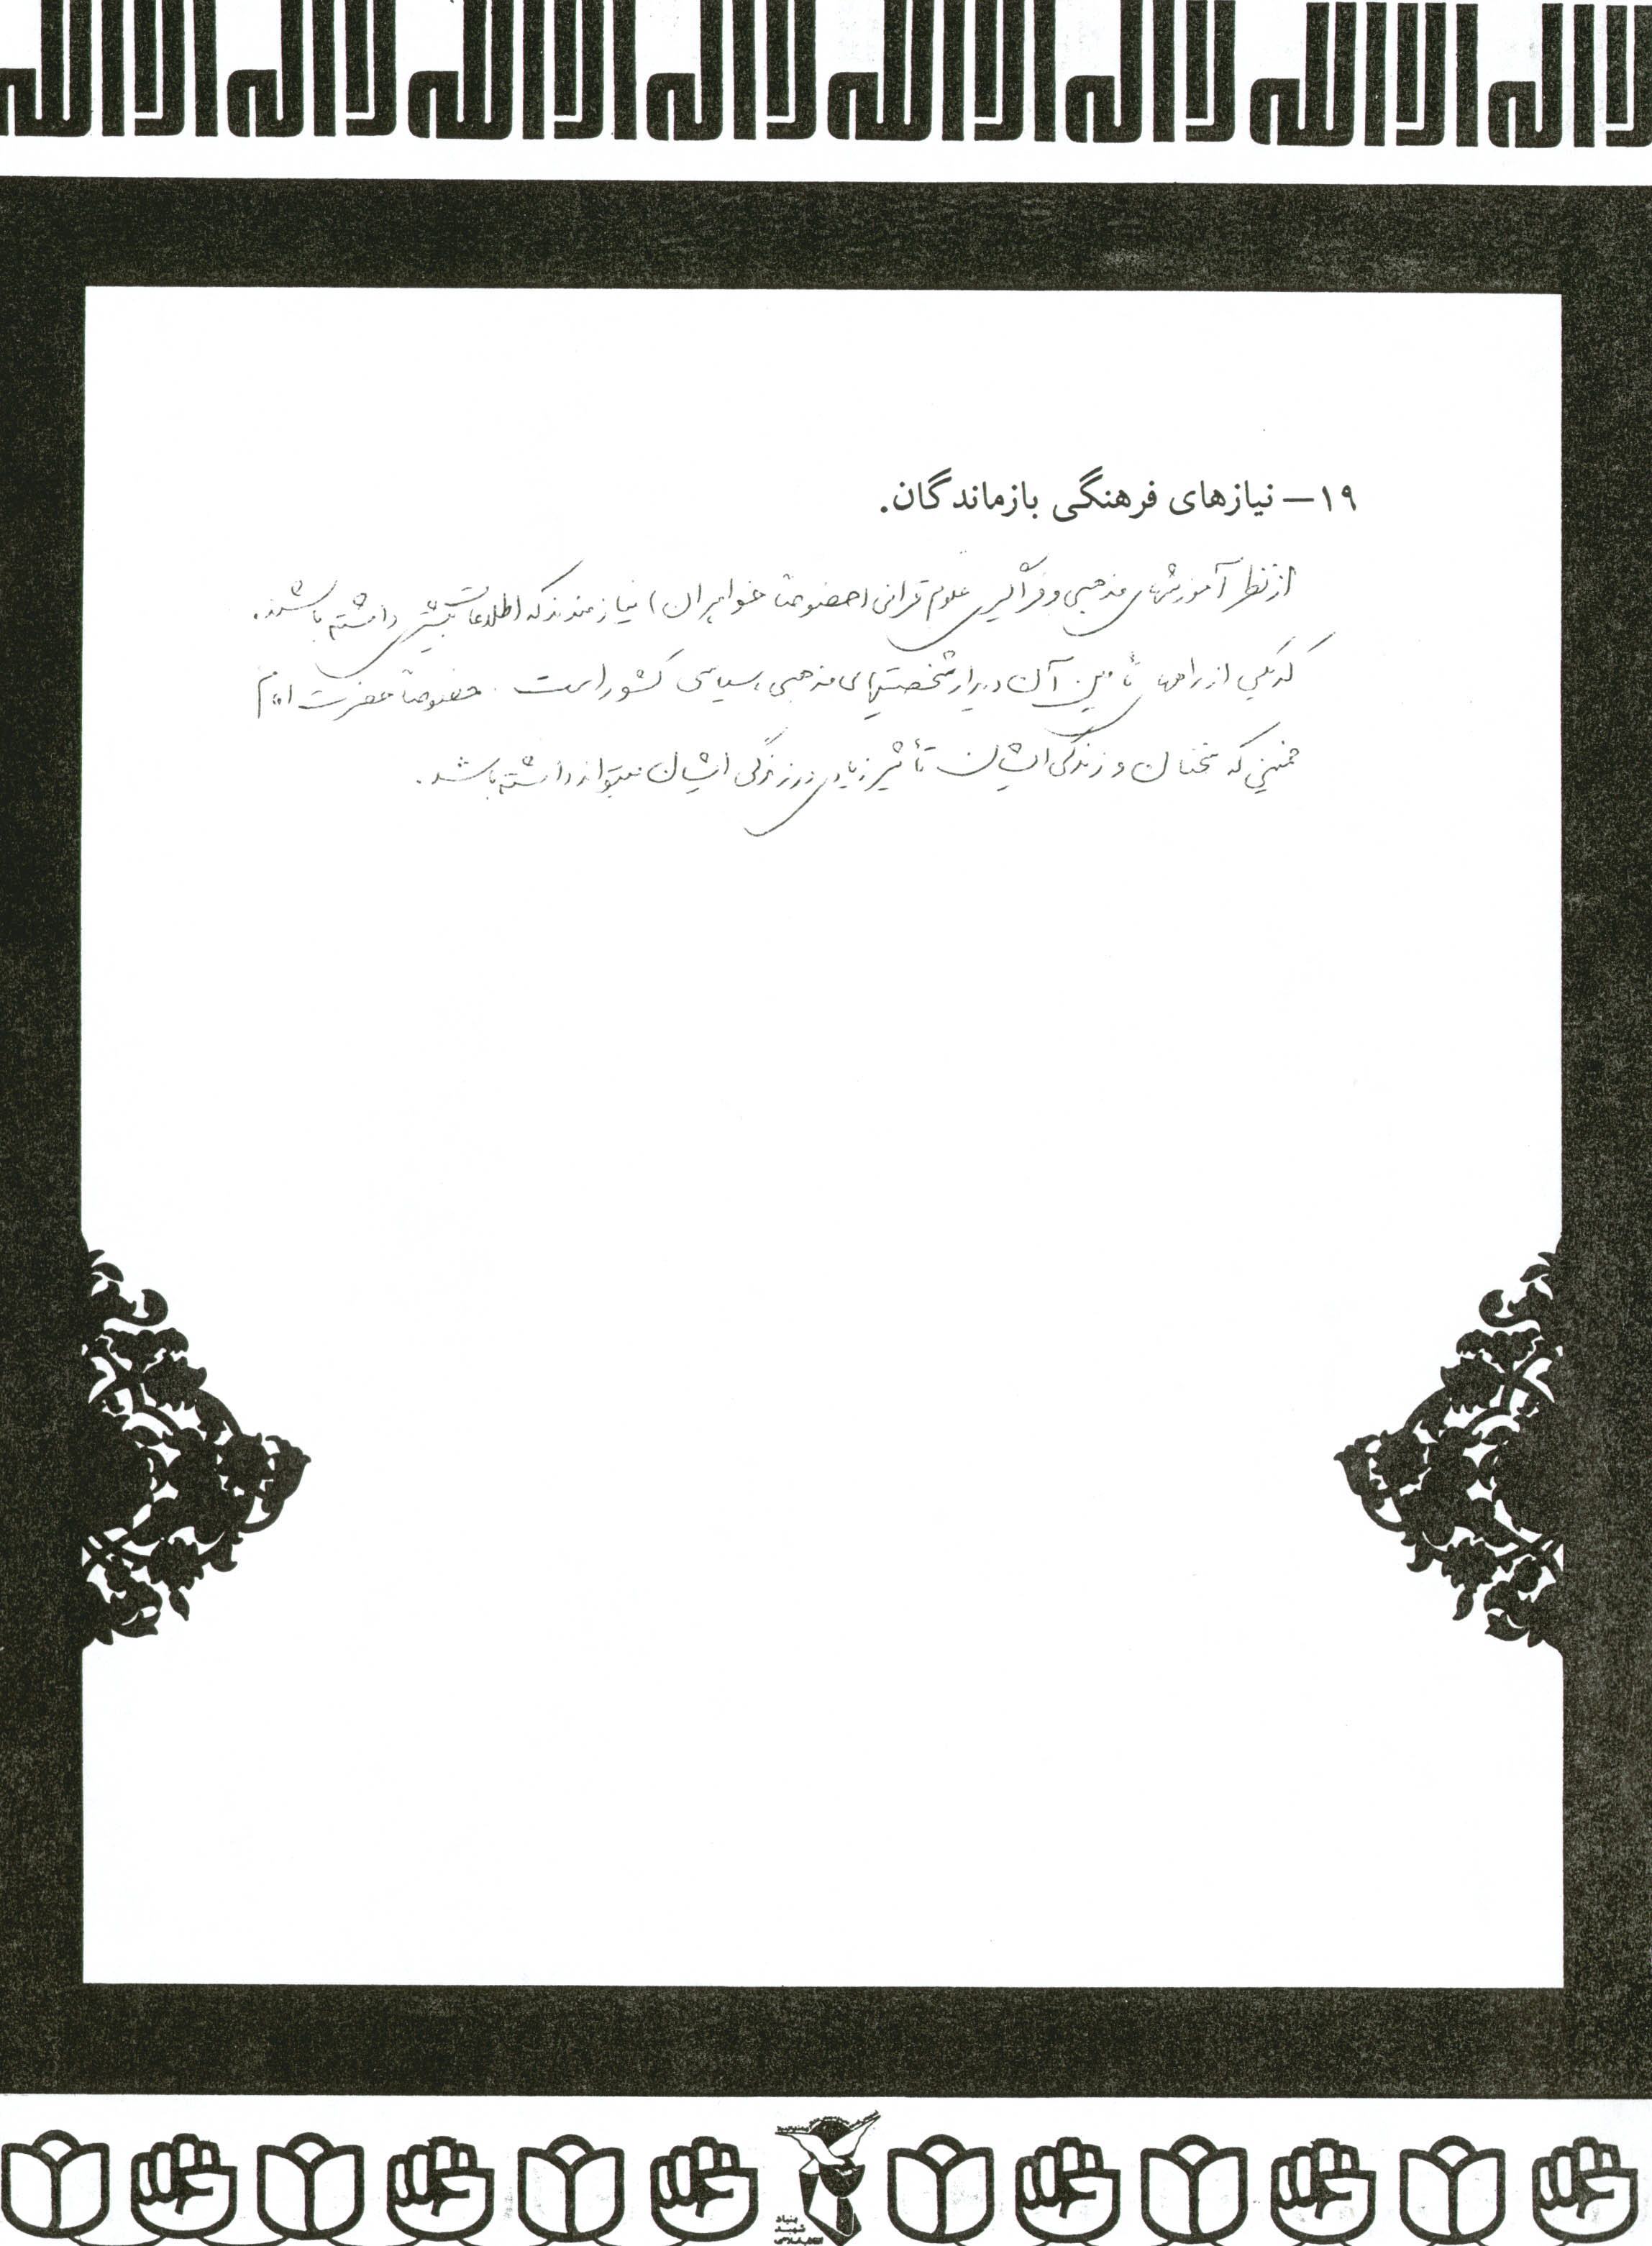 لا اله الا الله لا اله الا الله لا اله الا الله لا اله الا الله
۱۹ـ نیازهای فرهنگی بازماندگان.
از نظر آموزشهای مذهبی و فراگیری علوم قرآنی (خصوصاً خواهران) نیازمندند که اطلاعات بیشتری داشته باشند.
که یکی از راههای تأمین آن دیدار شخصیتهای مذهبی، سیاسی کشور است. خصوصاً حضرت امام
خمینی که سخنان و زندگی ایشان تأثیر زیادی در زندگی ایشان میتواند داشته باشد.
بنیاد
شهید
انقلاب اسلامی